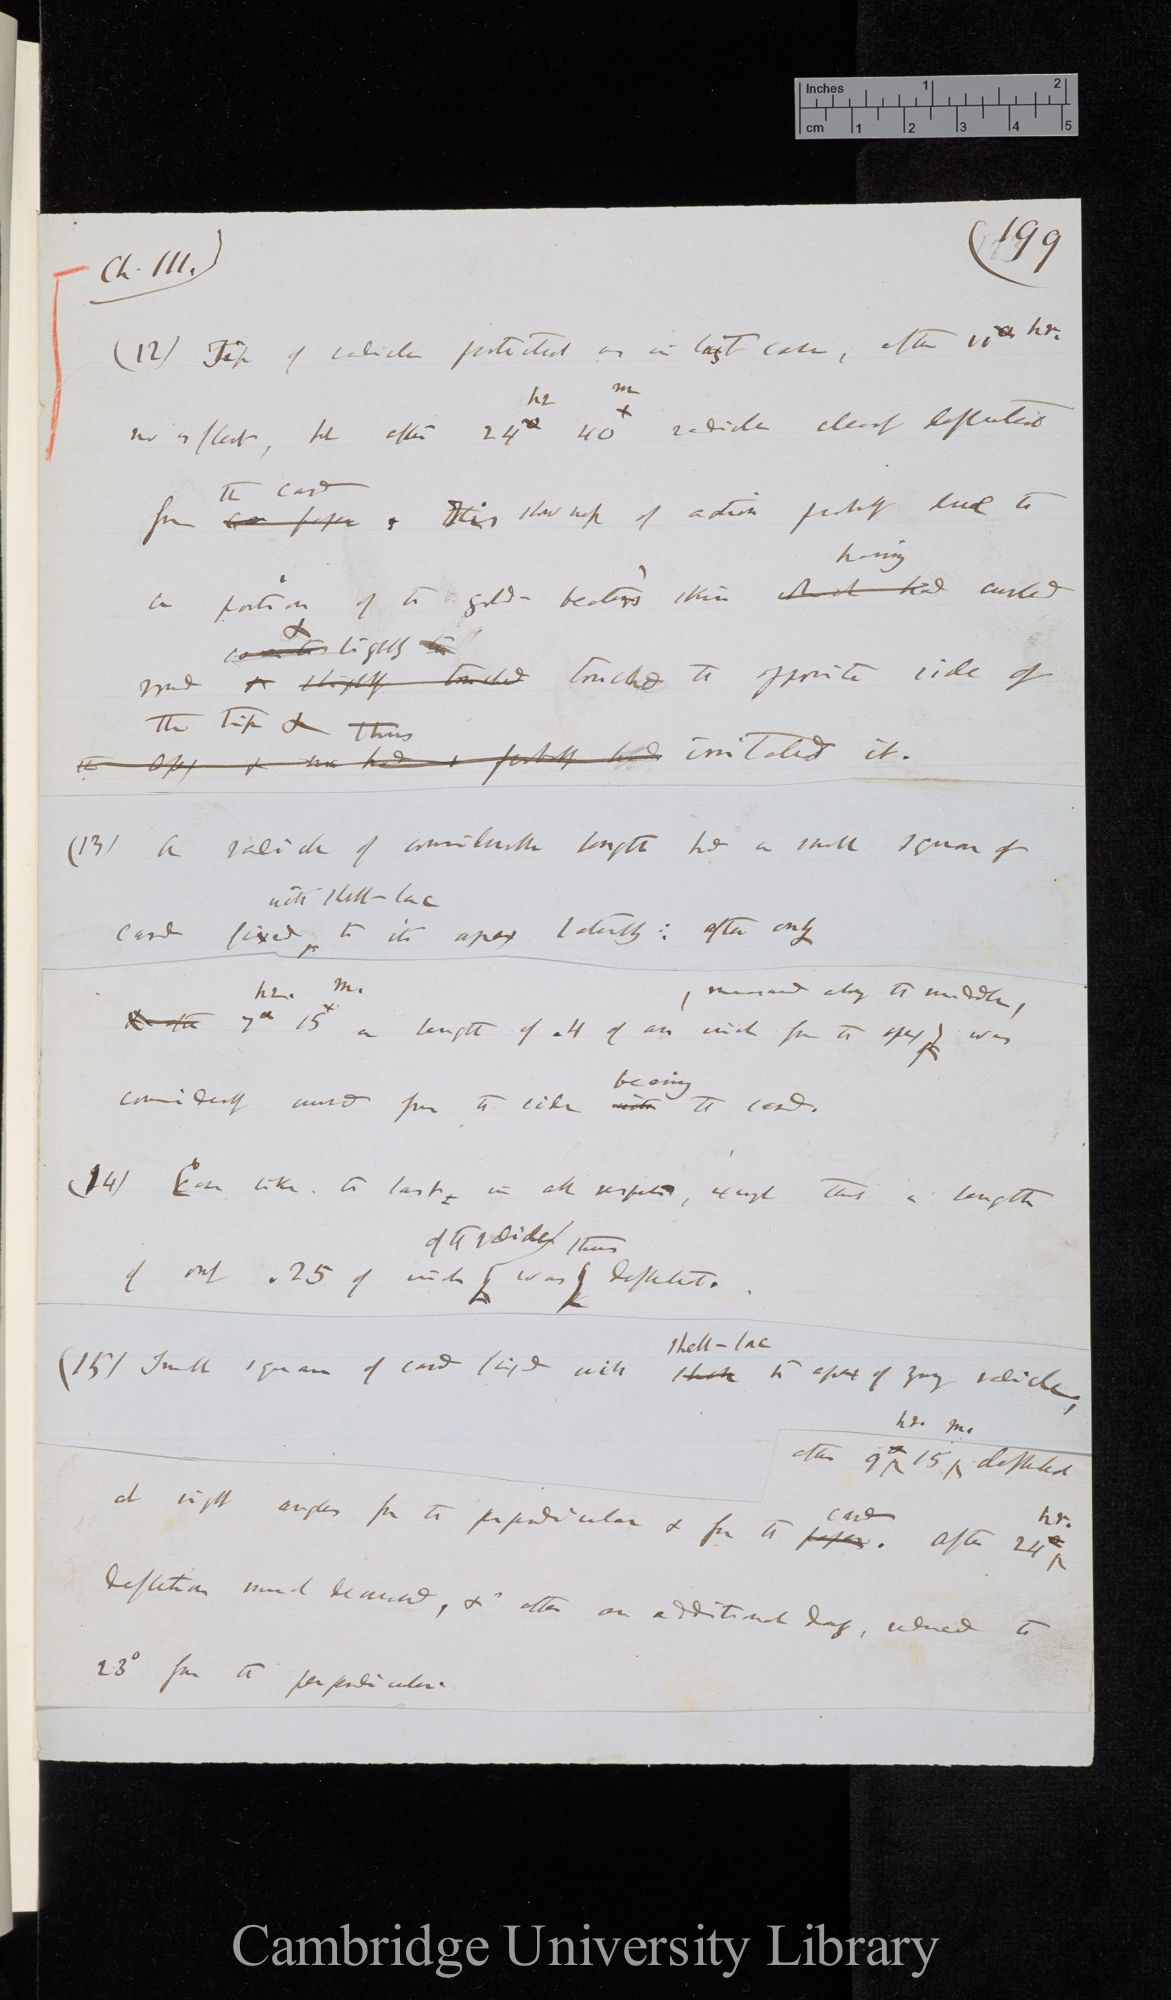 Inches 1 2
cm 1 2 3 4 5
Ch. III.)
(199
(12) Tip of radicle protected as in last case, after 11 hr.
hr m
no effect, but after 24 40 radicle clearly deflected
the card
from paper. This slowness of action probably due to
having
a portion of the gold-beaters' skin which had curled
& lightly
round & slightly touched touched the opposite side of
the tip & thus
the apex & irritated it.
(13) A radicle of considerable length had a small square of
with shell-lac
card fixed to its apex laterally: after only
hr. m.
, measured along the middle,
7 15 a length of .4 of an inch from the apex, was
bearing
considerably curved from the side with the card.
(14) Case like the last in all respects, except that a length
of the radicle thus
of only .25 of inch was deflected.
shell-lac
(15) Small square of card fixed with shellac to apex of young radicle,
hr. m.
after 9 15 deflected
card hr.
at right angles from the perpendicular & from the paper. After 24
deflection much decreased, & after an additional day, reduced to
23° from the perpendicular.
Cambridge University Library